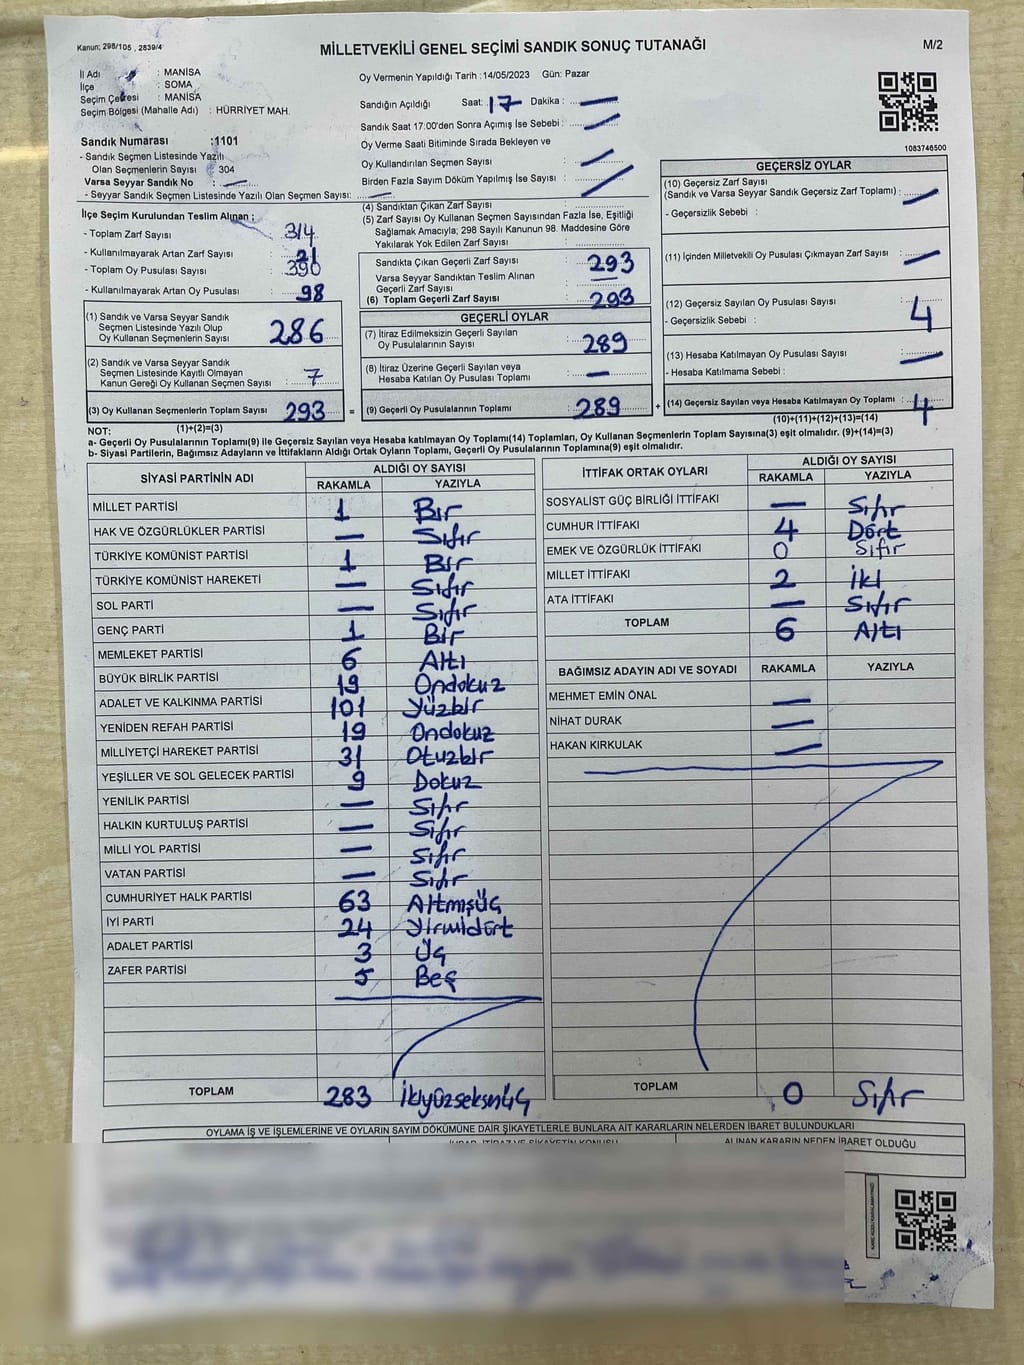 Kanun; 298/105 , 2839/4
MİLLETVEKİLİ GENEL SEÇİMİ SANDIK SONUÇ TUTANAĞI
M/2
İl Adı : MANİSA
İlçe : SOMA
Seçim Çevresi : MANİSA
Seçim Bölgesi (Mahalle Adı) : HÜRRİYET MAH.
Oy Vermenin Yapıldığı Tarih :14/05/2023 Gün: Pazar
Sandığın Açıldığı Saat: 17 Dakika : —
Sandık Saat 17:00'den Sonra Açımış İse Sebebi : —
Oy Verme Saati Bitiminde Sırada Bekleyen ve
Oy Kullandırılan Seçmen Sayısı : —
Birden Fazla Sayım Döküm Yapılmış İse Sayısı : —
1083746500
Sandık Numarası :1101
- Sandık Seçmen Listesinde Yazılı
Olan Seçmenlerin Sayısı : 304
Varsa Seyyar Sandık No : —
- Seyyar Sandık Seçmen Listesinde Yazılı Olan Seçmen Sayısı: —
İlçe Seçim Kurulundan Teslim Alınan ;
- Toplam Zarf Sayısı : 314
- Kullanılmayarak Artan Zarf Sayısı : 21
- Toplam Oy Pusulası Sayısı : 390
- Kullanılmayarak Artan Oy Pusulası : 98
(1) Sandık ve Varsa Seyyar Sandık
Seçmen Listesinde Yazılı Olup
Oy Kullanan Seçmenlerin Sayısı : 286
(2) Sandık ve Varsa Seyyar Sandık
Seçmen Listesinde Kayıtlı Olmayan
Kanun Gereği Oy Kullanan Seçmen Sayısı : 7
(3) Oy Kullanan Seçmenlerin Toplam Sayısı : 293
(1)+(2)=(3)
(4) Sandıktan Çıkan Zarf Sayısı :
(5) Zarf Sayısı Oy Kullanan Seçmen Sayısından Fazla İse, Eşitliği
Sağlamak Amacıyla; 298 Sayılı Kanunun 98. Maddesine Göre
Yakılarak Yok Edilen Zarf Sayısı :
Sandıkta Çıkan Geçerli Zarf Sayısı : 293
Varsa Seyyar Sandıktan Teslim Alınan
Geçerli Zarf Sayısı : —
(6) Toplam Geçerli Zarf Sayısı : 293
GEÇERLİ OYLAR
(7) İtiraz Edilmeksizin Geçerli Sayılan
Oy Pusulalarının Sayısı : 289
(8) İtiraz Üzerine Geçerli Sayılan veya
Hesaba Katılan Oy Pusulası Toplamı : —
= (9) Geçerli Oy Pusulalarının Toplamı : 289 +
GEÇERSİZ OYLAR
(10) Geçersiz Zarf Sayısı
(Sandık ve Varsa Seyyar Sandık Geçersiz Zarf Toplamı) : —
- Geçersizlik Sebebi :
(11) İçinden Milletvekili Oy Pusulası Çıkmayan Zarf Sayısı : —
(12) Geçersiz Sayılan Oy Pusulası Sayısı : 4
- Geçersizlik Sebebi :
(13) Hesaba Katılmayan Oy Pusulası Sayısı : —
- Hesaba Katılmama Sebebi :
(14) Geçersiz Sayılan veya Hesaba Katılmayan Oy Toplamı : 4
(10)+(11)+(12)+(13)=(14)
NOT:
a- Geçerli Oy Pusulalarının Toplamı(9) ile Geçersiz Sayılan veya Hesaba katılmayan Oy Toplamı(14) Toplamları, Oy Kullanan Seçmenlerin Toplam Sayısına(3) eşit olmalıdır. (9)+(14)=(3)
b- Siyasi Partilerin, Bağımsız Adayların ve İttifakların Aldığı Ortak Oyların Toplamı, Geçerli Oy Pusulalarının Toplamına(9) eşit olmalıdır.
SİYASİ PARTİNİN ADI
ALDIĞI OY SAYISI
RAKAMLA YAZIYLA
MİLLET PARTİSİ 1 Bir
HAK VE ÖZGÜRLÜKLER PARTİSİ — Sıfır
TÜRKİYE KOMÜNİST PARTİSİ 1 Bir
TÜRKİYE KOMÜNİST HAREKETİ — Sıfır
SOL PARTİ — Sıfır
GENÇ PARTİ 1 Bir
MEMLEKET PARTİSİ 6 Altı
BÜYÜK BİRLİK PARTİSİ 19 Ondokuz
ADALET VE KALKINMA PARTİSİ 101 Yüzbir
YENİDEN REFAH PARTİSİ 19 Ondokuz
MİLLİYETÇİ HAREKET PARTİSİ 31 Otuzbir
YEŞİLLER VE SOL GELECEK PARTİSİ 9 Dokuz
YENİLİK PARTİSİ — Sıfır
HALKIN KURTULUŞ PARTİSİ — Sıfır
MİLLİ YOL PARTİSİ — Sıfır
VATAN PARTİSİ — Sıfır
CUMHURİYET HALK PARTİSİ 63 Altmışüç
İYİ PARTİ 24 Yirmidört
ADALET PARTİSİ 3 Üç
ZAFER PARTİSİ 5 Beş
TOPLAM 283 İkiyüzseksenüç
İTTİFAK ORTAK OYLARI
ALDIĞI OY SAYISI
RAKAMLA YAZIYLA
SOSYALİST GÜÇ BİRLİĞİ İTTİFAKI — Sıfır
CUMHUR İTTİFAKI 4 Dört
EMEK VE ÖZGÜRLÜK İTTİFAKI 0 Sıfır
MİLLET İTTİFAKI 2 İki
ATA İTTİFAKI — Sıfır
TOPLAM 6 Altı
BAĞIMSIZ ADAYIN ADI VE SOYADI RAKAMLA YAZIYLA
MEHMET EMİN ÖNAL —
NİHAT DURAK —
HAKAN KIRKULAK —
TOPLAM 0 Sıfır
OYLAMA İŞ VE İŞLEMLERİNE VE OYLARIN SAYIM DÖKÜMÜNE DAİR ŞİKAYETLERLE BUNLARA AİT KARARLARIN NELERDEN İBARET BULUNDUKLARI
ALINAN KARARIN NEDEN İBARET OLDUĞU